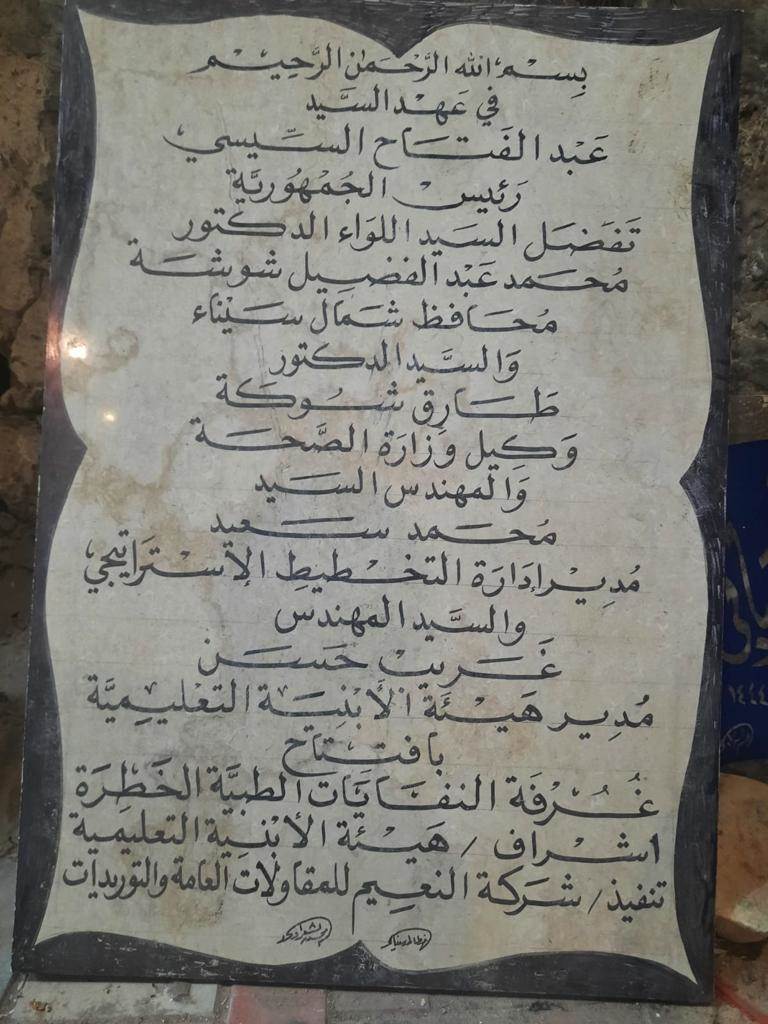 بِسْمِ اللهِ الرَّحْمَنِ الرَّحِيْمِ
في عَهْد السَّيد
عَبْد الفَتَاح السِّيسي
رَئيس الجُمْهُوريَّة
تَفَضَل السَيد اللوَاء الدكتور
مُحَمد عَبْد الفضِيل شوشَة
مُحَافظ شَمال سَيْناء
وَالسَّيد الدكتور
طَارِق شَوكَة
وَكِيل وَزارَة الصَّحَة
وَالمهندس السَيد
مُحَمد سَعيد
مُدِير إدَارَة التخْطيطِ الإسْترَاتيجي
والسَّيد المهندس
غَريب حَسَن
مُدِير هَيئَة الأبْنِيَة التعْليمِيَّة
بافتتاح
غُرْفَة النفَايَات الطبيَّة الخَطِرَة
اشراف / هَيْئة الأبْنِية التعليمية
تنفيذ / شَركَة النعِيم للمقاولات العامة والتوريدات